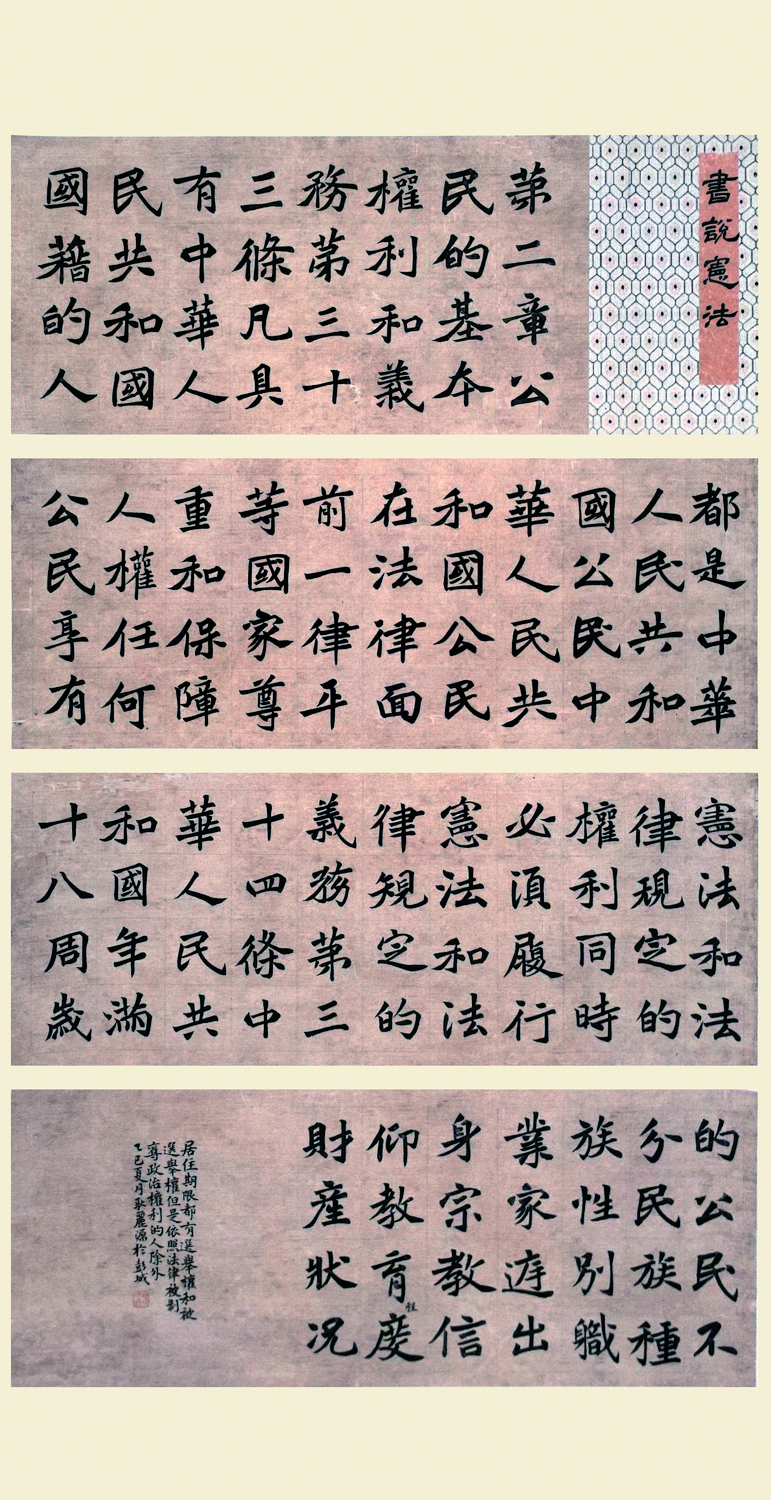 書說憲法
第二章公
民的基本
權利和義
務第三十
三條凡具
有中華人
民共和國
國籍的人
都是中華
人民共和
國公民中
華人民共
和國公民
在法律面
前一律平
等國家尊
重和保障
人權任何
公民享有
憲法和法
律規定的
權利同時
必須履行
憲法和法
律規定的
義務第三
十四條中
華人民共
和國年滿
十八周歲
的公民不
分民族種
族性別職
業家庭出
身宗教信
仰教育程度
財產狀況
居住期限都有選舉權和被
選舉權但是依照法律被剝
奪政治權利的人除外
乙巳夏月耿麗源於彭城